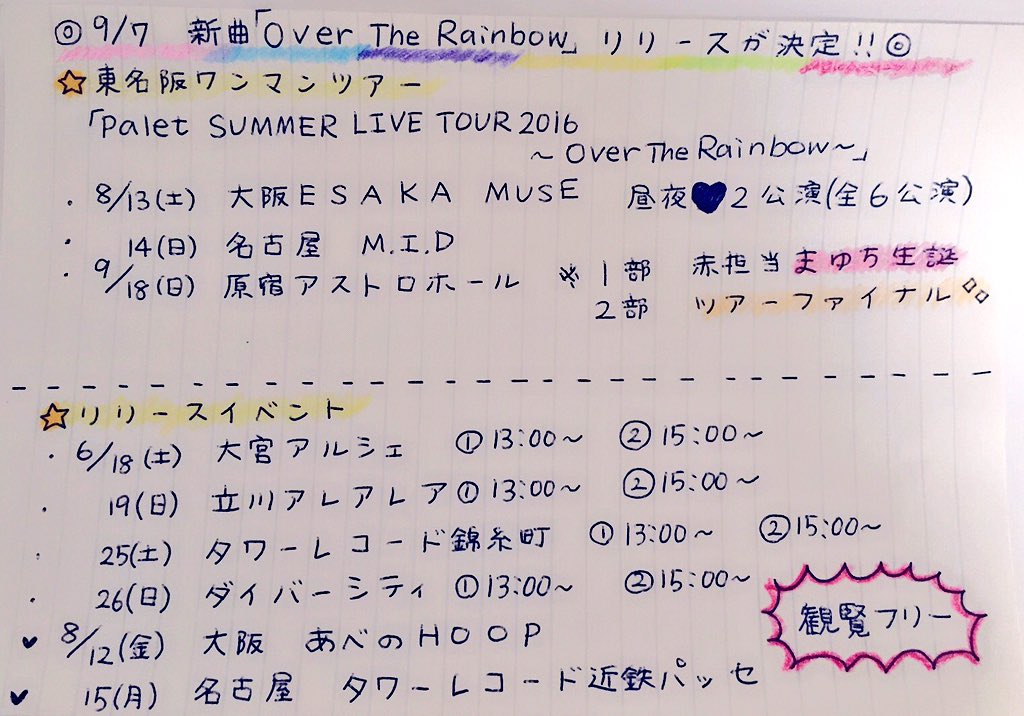 ◎9/7 新曲「Over The Rainbow」リリースが決定!!◎
☆東名阪ワンマンツアー
「Palet SUMMER LIVE TOUR 2016
～Over The Rainbow～」
・8/13(土) 大阪ESAKA MUSE 昼夜♥2公演(全6公演)
・14(日) 名古屋 M.I.D
・9/18(日) 原宿アストロホール ※1部 赤担当まゆち生誕
2部 ツアーファイナル
☆リリースイベント
・6/18(土) 大宮アルシェ ①13:00～ ②15:00～
・19(日) 立川アレアレア①13:00～ ②15:00～
・25(土) タワーレコード錦糸町 ①13:00～ ②15:00～
・26(日) ダイバーシティ ①13:00～ ②15:00～
観覧フリー
♥8/12(金) 大阪 あべのHOOP
♥15(月) 名古屋 タワーレコード近鉄パッセ